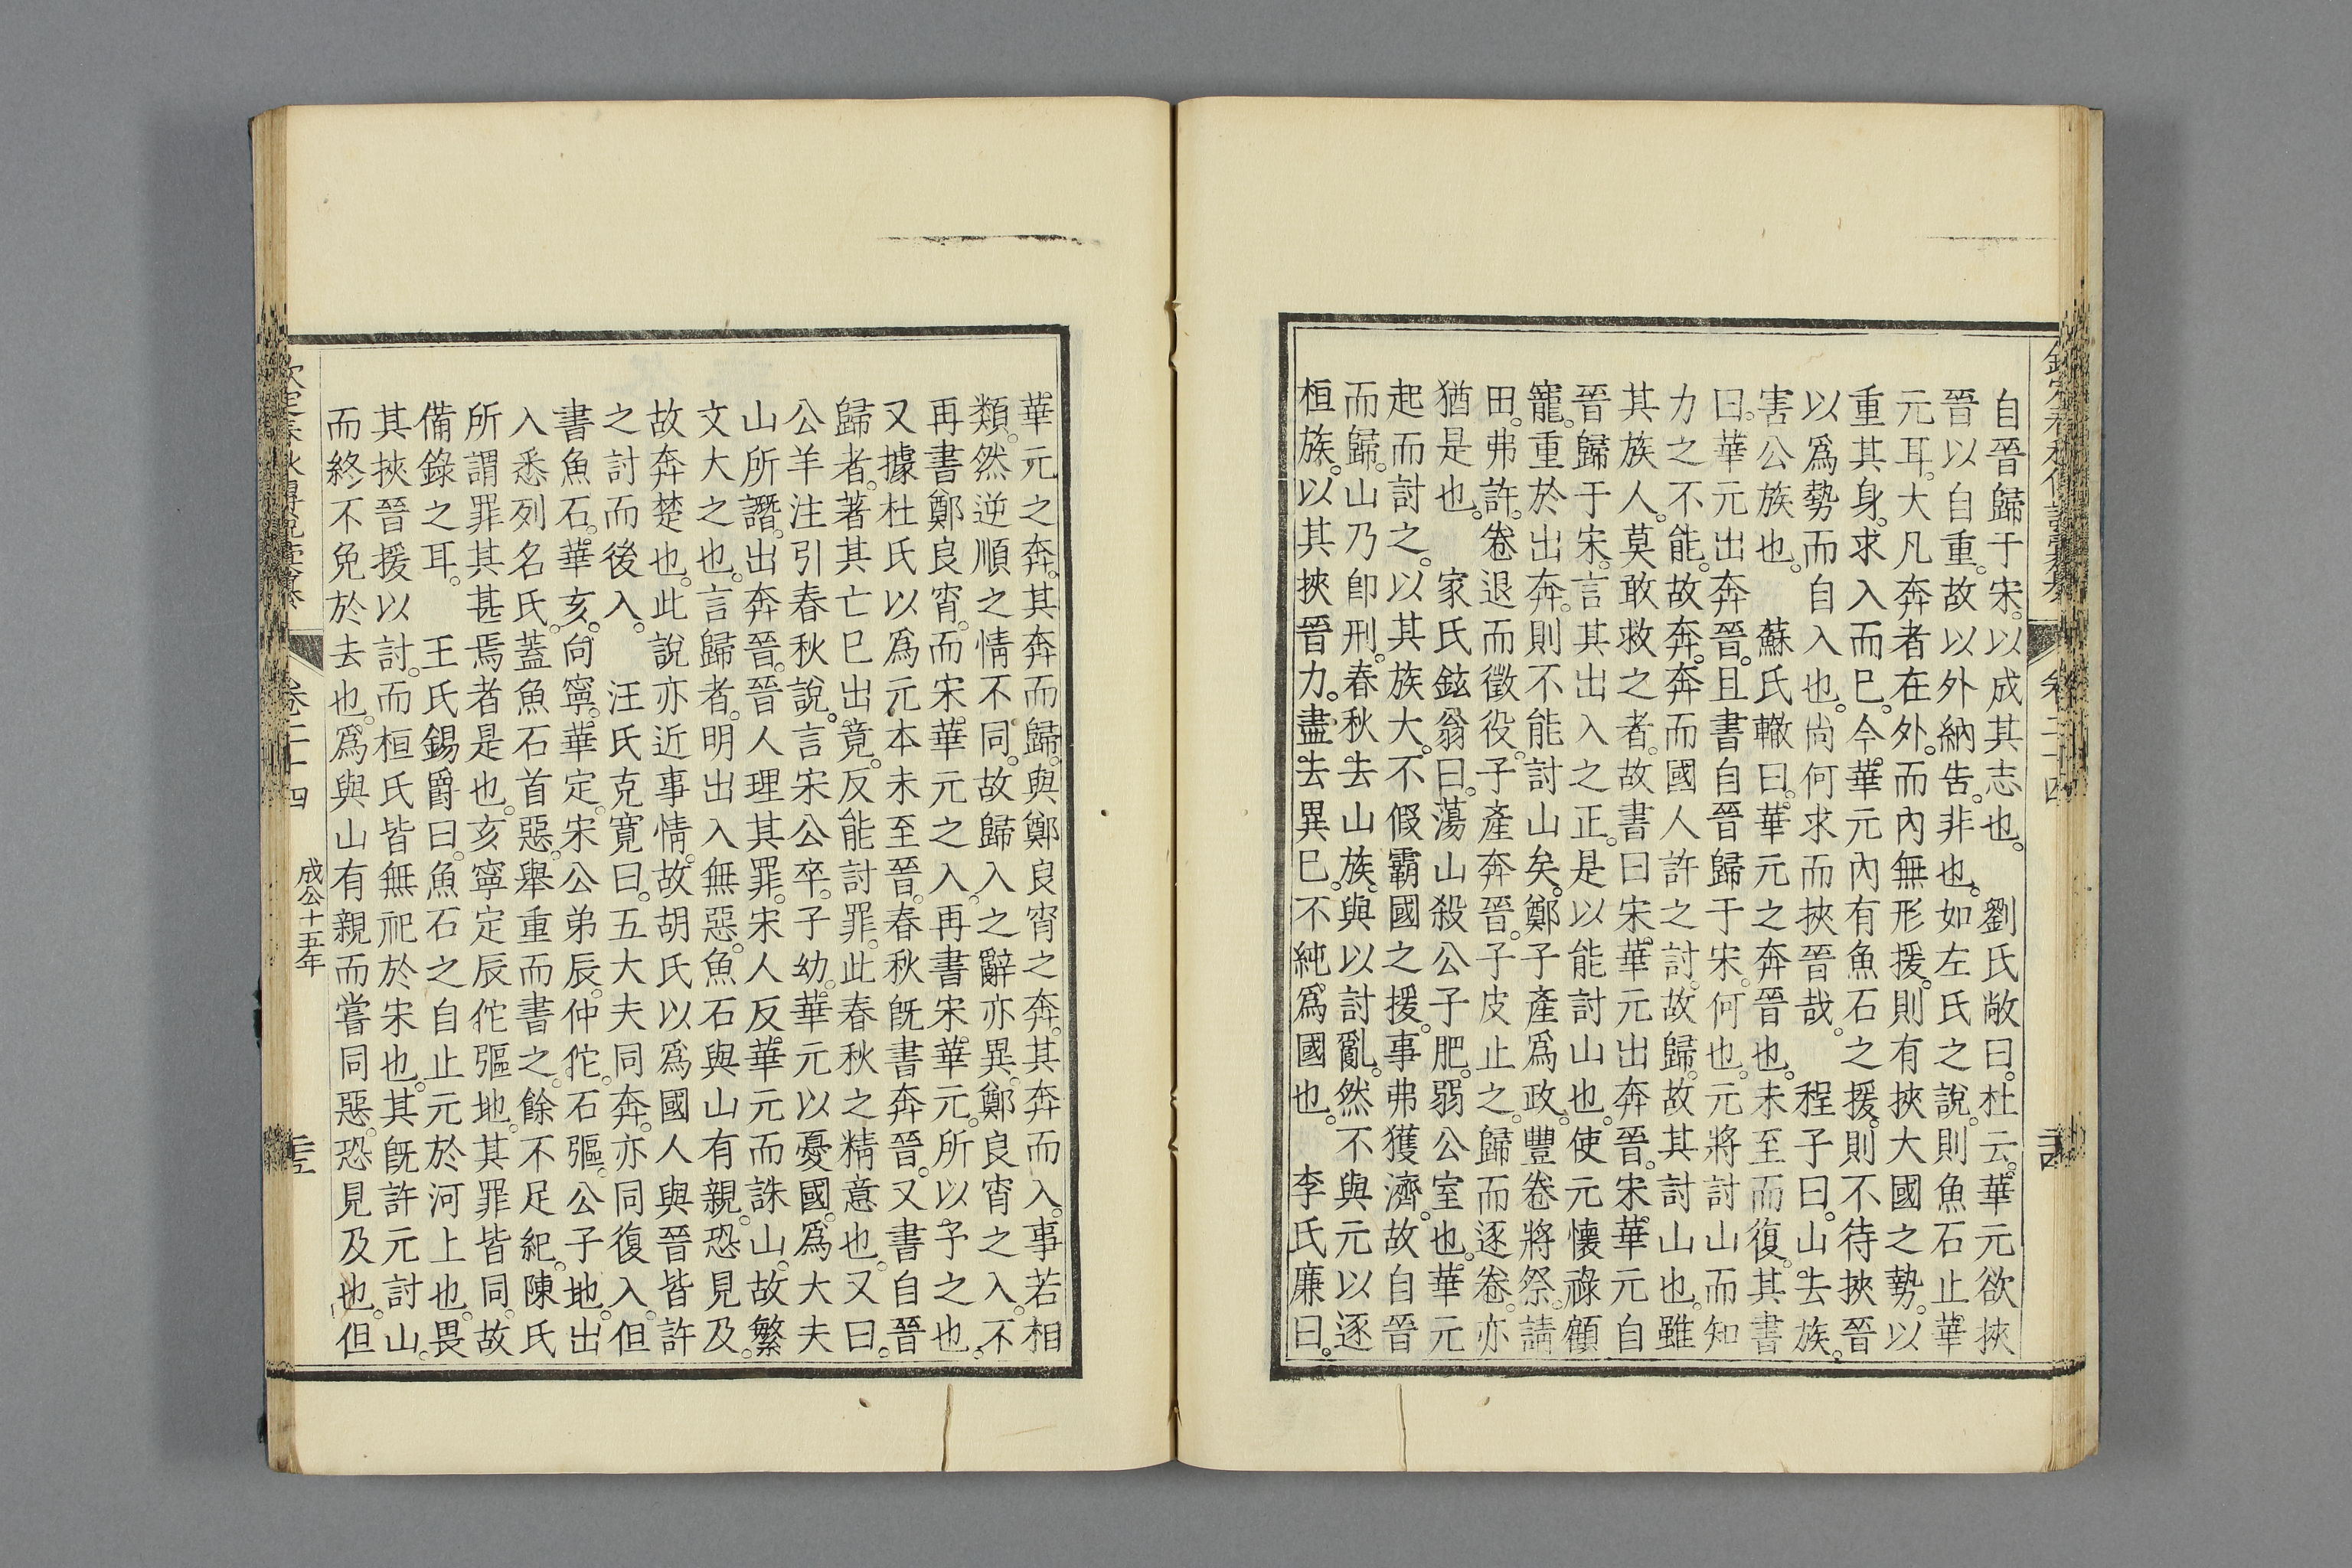 自晉歸于宋。以成其志也。　劉氏敞曰。杜云。華元欲挾
晉以自重。故以外納告。非也。如左氏之說。則魚石止華
元耳。大凡奔者在外。而內無形援。則有挾大國之勢。以
重其身。求入而巳。今華元內有魚石之援。則不待挾晉
以爲勢而自入也。尚何求而挾晉哉。　程子曰。山去族。
害公族也。　蘇氏轍曰。華元之奔晉也。未至而復。其書
曰。華元出奔晉。且書自晉歸于宋。何也。元將討山而知
力之不能。故奔。奔而國人許之討。故歸。故其討山也。雖
其族人。莫敢救之者。故書曰宋華元出奔晉。宋華元自
晉歸于宋。言其出入之正。是以能討山也。使元懷祿顧
寵。重於出奔。則不能討山矣。鄭子產爲政。豐卷將祭。請
田。弗許。卷退而徵役。子產奔晉。子皮止之。歸而逐卷。亦
猶是也。　家氏鉉翁曰。蕩山殺公子肥。弱公室也。華元
起而討之。以其族大。不假霸國之援。事弗獲濟。故自晉
而歸。山乃卽刑。春秋去山族。與以討亂。然不與元以逐
桓族。以其挾晉力。盡去異巳。不純爲國也。　李氏廉曰。
華元之奔。其奔而歸。與鄭良宵之奔。其奔而入。事若相
類。然逆順之情不同。故歸入之辭亦異。鄭良宵之入。不
再書鄭良宵。而宋華元之入。再書宋華元。所以予之也。
又據杜氏以爲元本未至晉。春秋旣書奔晉。又書自晉
歸者。著其亡巳出竟。反能討罪。此春秋之精意也。又曰。
公羊注引春秋說。言宋公卒。子幼。華元以憂國。爲大夫
山所譖。出奔晉。晉人理其罪。宋人反華元而誅山。故繁
文大之也。言歸者。明出入無惡。魚石與山有親。恐見及。
故奔楚也。此說亦近事情。故胡氏以爲國人與晉皆許
之討而後入。　汪氏克寬曰。五大夫同奔。亦同復入。但
書魚石。華亥。向寧。華定。宋公弟辰。仲佗。石彄。公子地。出
入悉列名氏。蓋魚石首惡。舉重而書之。餘不足紀。陳氏
所謂罪其甚焉者是也。亥寧定辰佗彄地。其罪皆同。故
備錄之耳。　王氏錫爵曰。魚石之自止元於河上也。畏
其挾晉援以討。而桓氏皆無祀於宋也。其旣許元討山。
而終不免於去也。爲與山有親而嘗同惡。恐見及也。但
卷二十四
成公十五年